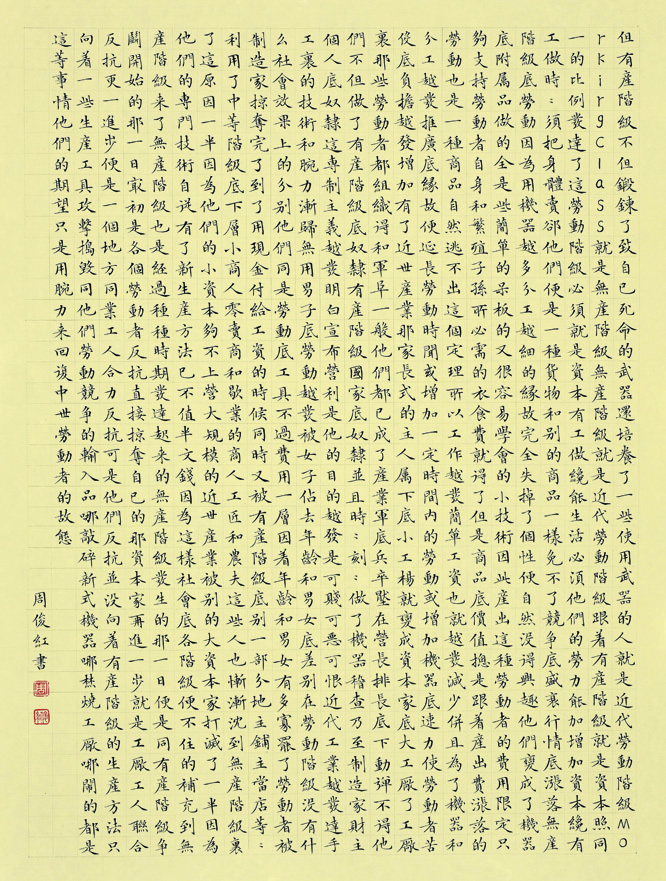 但有產階級不但鍛鍊了致自己死命的武器還培養了一些使用武器的人就是近代勞動階級MO
rkirgClass就是無產階級無產階級就是近代勞動階級跟着有產階級就是資本照同
一的比例發達了這勞動階級必須就是資本有工做纔能生活必須他們的勞力能加增加資本纔有
工做時：須把身體賣郤他們便是一種貨物和別的商品一樣免不了競爭底盛衰行情底漲落無產
階級底勞動因為用機器越多分工越細的緣故完全失掉了個性便自然沒得興趣他們變成了機器
底附属品做的全是些簡單的呆板的又很容易學會的小技術因此產出這種勞動者的費用限定只
夠支持勞動者自身和繁殖子孫所必需的衣食費就得了但是商品底價值總是跟着產出費漲落的
勞動也是一種商品自然逃不出這個定理所以工作越發簡單工資也就越發減少併且為了機器和
分工越發推廣底緣故便延長勞動時間或增加一定時間内的勞動或增加機器底速力使勞動者苦
役底負擔越發增加有了近世產業那家長式的主人属下底小工楊就變成資本家底大工厰了工厰
裏那些勞動者都組織得和軍阜一般他們都已成了產業軍底兵卒墜在營長排長底下動彈不得他
們不但做了有產階級底奴隸有產階級國家底奴隸並且時：刻：做了機器稽查乃至制造家財主
個人底奴隸這專制主義越發明白宣布營利是他的目的越發是可賤可惡可恨近代工業越發達手
工裏的技術和腕力漸歸無用男子底勞動越發被女子佔去年齡和男女底差别在勞動階級沒有什
么社會放果上的分别他們同是勞動底工具不過費用一層因着年齡和男女有多寡罷了勞動者被
制造家掠奪完了到了用現金付給工資的時候同時又被有產階級底别一部分地主鋪主當店等：
利用了中等階級底下層小商人零賣商和歇業的商人工匠和農夫這些人也慚漸沈到無產階級裏
了這原因一半因為他們的小資本夠不上營大規模的近世產業被别的大資本家打滅了一半因為
他們的專門技術自從有了新生產方法已不值半文錢因為這樣社會底各階級便不住的補充到無
產階級來了無產階級也是經過種種時期發達起來的無產階級發生的那一日便是同有產階級争
鬪開始的那一日最初是各個勞動者反抗直接掠奪自已的那資本家再進一步就是工厰工人聯合
反抗更一進步便是一個地方同業工人合力反抗可是他們反抗並沒向着有產階級的生產方法只
向着一些生產工具攻擊搗毀同他們勞動競争的輸入品哪敲碎新式機器哪焚燒工厰哪鬧的都是
這等事情他們的期望只是用腕力来回復中世勞動者的故態
周俊紅書